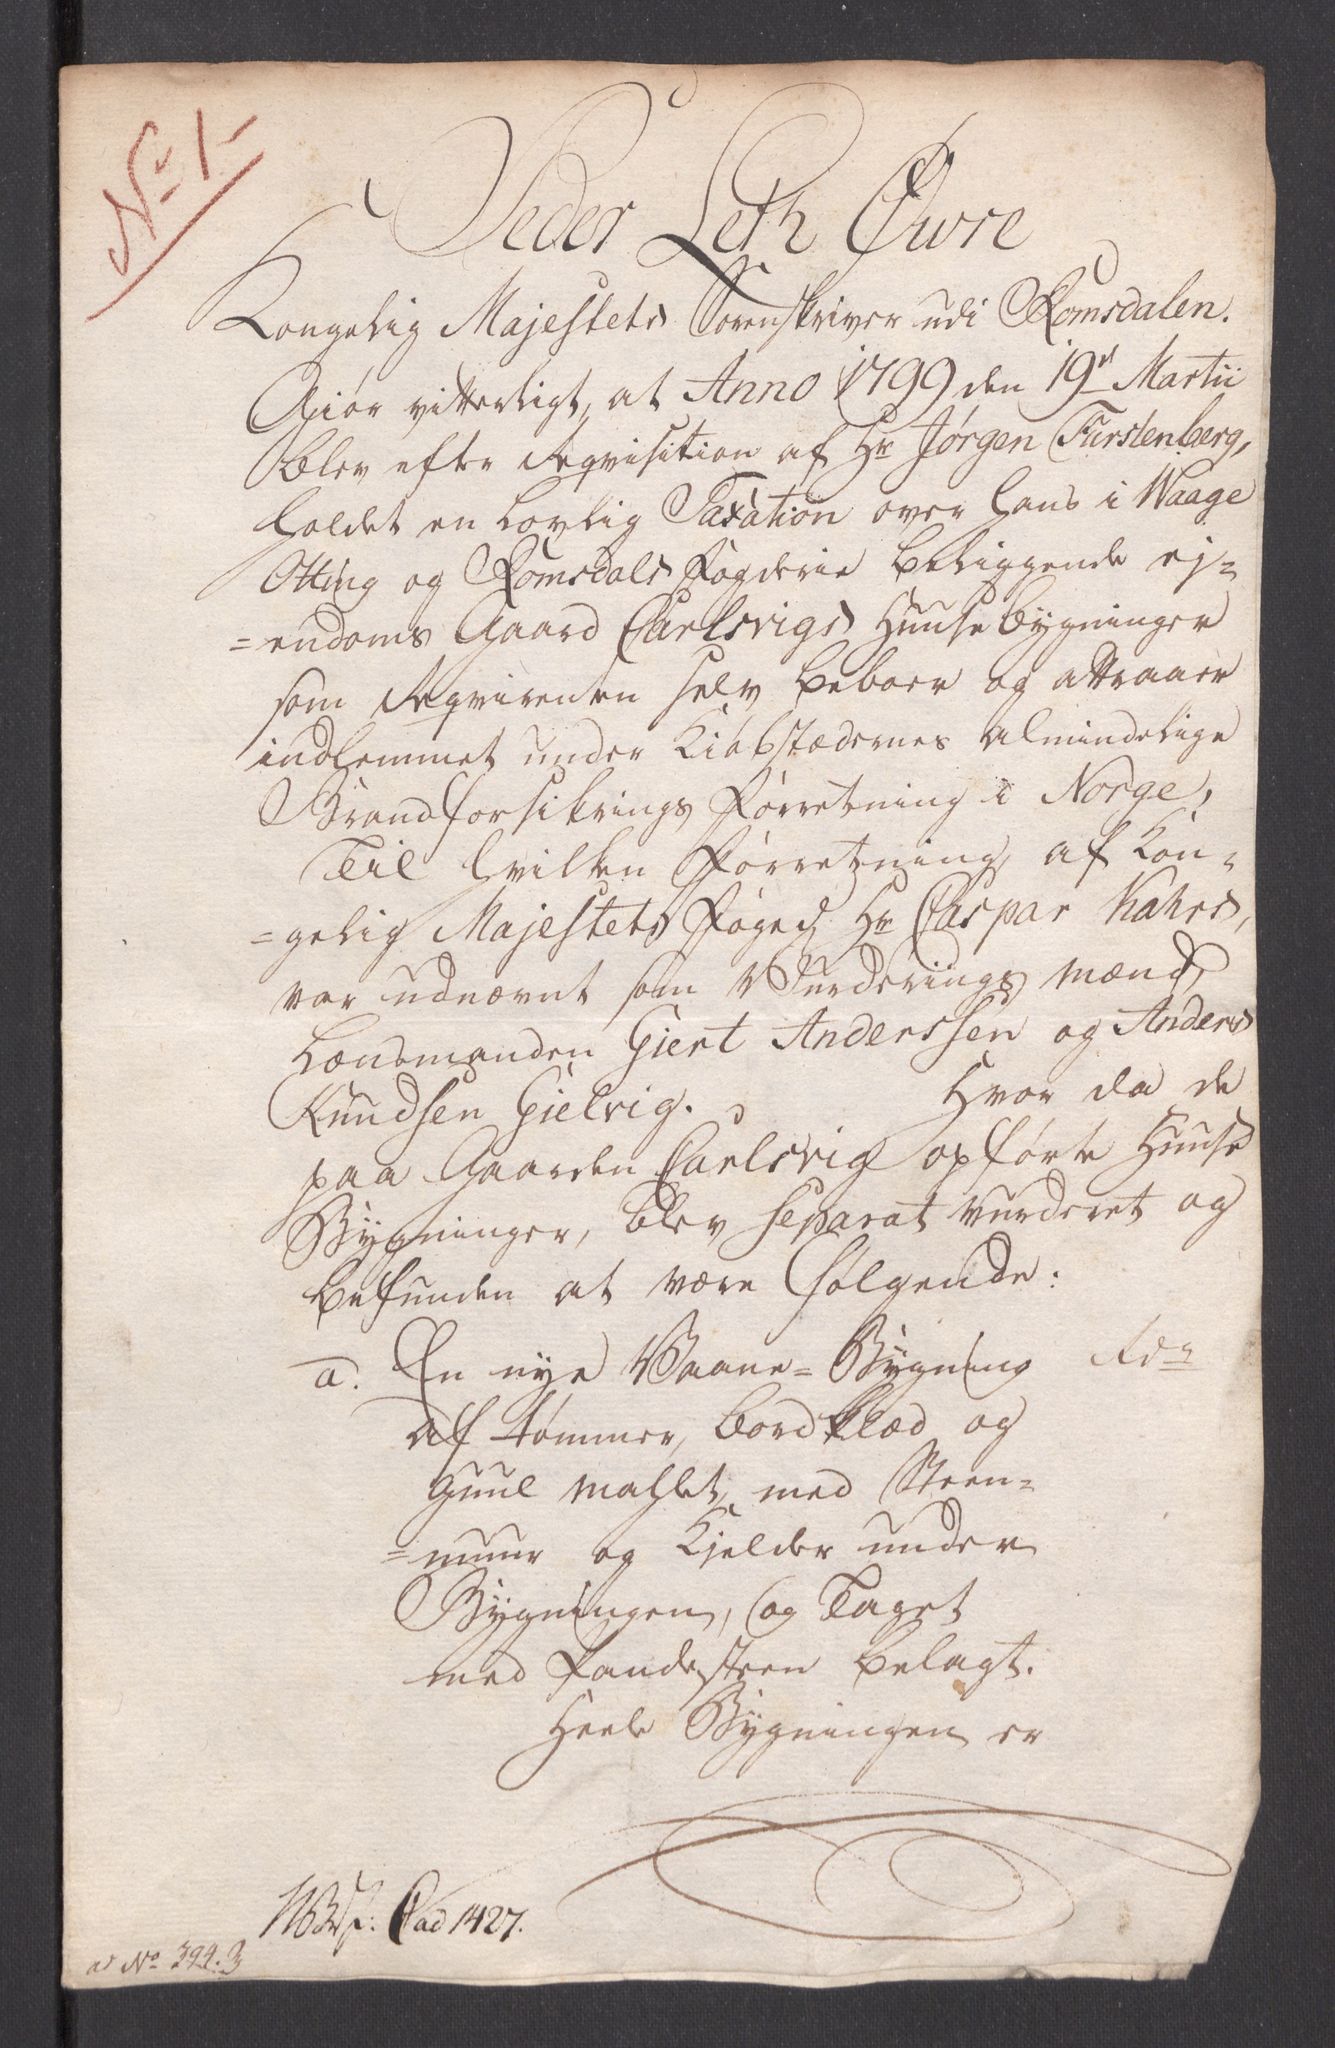 No 1-
Peder Leth Øwre
Kongelig Majestets Sorenskriver udi Romsdalen.
Giør vitterligt, at Anno 1799 den 19de Martii
blev efter Reqvisition af Hr Jørgen Fürstenberg,
holdet en Lovlig Taxation over hans i Waage
Otting og Romsdals Fogderie beliggende ej-
=endoms Gaard Carlsvigs Huusebygninger
som Reqvirenten selv beboer og attraaer
indlemmet under Kiøbstædernes almindelige
Brandforsikrings Forretning i Norge,
Til hvilken Forretning, af Kon-
=gelig Majestets Foged Hr Caspar Kahrs,
var udnævnt som Wurderings Mænd,
Lænsmanden Giert Anderssen og Anders
Knudsen Gielvig. Hvor da de
paa Gaarden Carlsvig opførte Huuse
Bygninger, blev separat vurderet og
befunden at være følgende:
a. En nye Waane-Bygning Rdr
af tømmer, bordklæd og
Guul mahlet, med Steen-
=muur og Kjelder under
Bygningen, og Taget
med Pandesteen belagt.
Heele Bygningen er
Cad 1427.
ad No 394.3